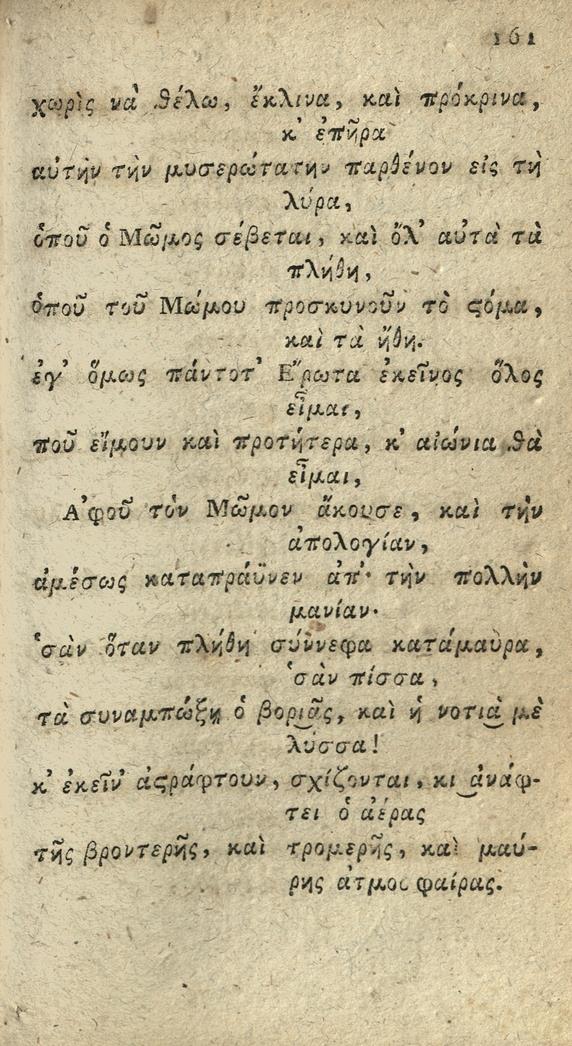 161
χωρὶς νὰ θέλω, ἔκλινα, καὶ πρόκρινα,
κ' ἐπῆρα
αὐτὴν τὴν μυσερώτατην παρθένον εἰς τὴ
λύρα,
ὁποῦ ὁ Μῶμος σέβεται, καὶ ὅλ' αὐτὰ τὰ
πλήθη,
ὁποῦ τοῦ Μώμου προσκυνοῦν τὸ ϛόμα,
καὶ τὰ ἤθη.
ἐγ' ὅμως πάντοτ' Ε῎ρωτα ἐκεῖνος ὅλος
εἶμαι,
ποῦ εἴμουν καὶ προτήτερα, κ' αἰώνια θὰ
εἶμαι,
Α'φοῦ τὸν Μῶμον ἄκουσε, καὶ τὴν
ἀπολογίαν,
ἀμέσως καταπράϋνεν ἀπ' τὴν πολλὴν
μανίαν·
'σὰν ὅταν πλήθη σύννεφα κατάμαυρα,
'σὰν πίσσα,
τὰ συναμπώξῃ ὁ βορι͜ᾶς, καὶ ἡ νοτι͜ὰ μὲ
λύσσα!
κ' ἐκεῖν' ἀϛράφτουν, σχίζονται, κι͜ ἀνάφ-
τει ὁ ἀέρας
τῆς βροντερῆς, καὶ τρομερῆς, καὶ μαύ-
ρης ἀτμοσφαίρας.